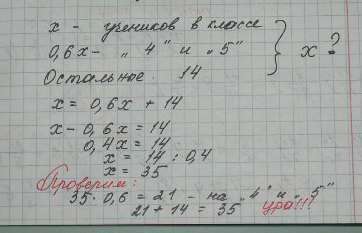 x - учеников в классе
0,6x - „4" и „5"
Остальное. 14
x ?
x = 0,6x + 14
x - 0,6x = 14
0,4x = 14
x = 14 : 0,4
x = 35
Проверим:
35 · 0,6 = 21 - на „4" и „5"
21 + 14 = 35 ура!!!